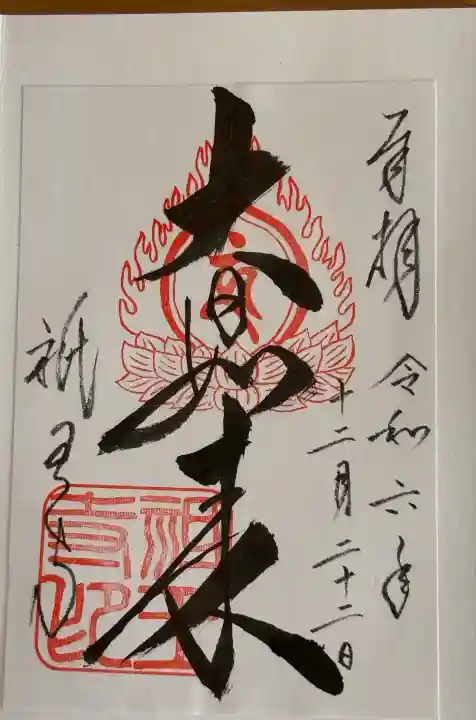 奉拝 令和六年
十二月二十二日
大日如来
祇王寺